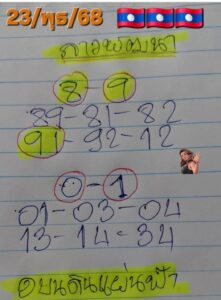 23/พุธ/68
ลาวพัฒนา
8-9
89-81-82
91-92-12
0-1
01-03-04
13-14-34
จบนดินแผ่นฟ้า